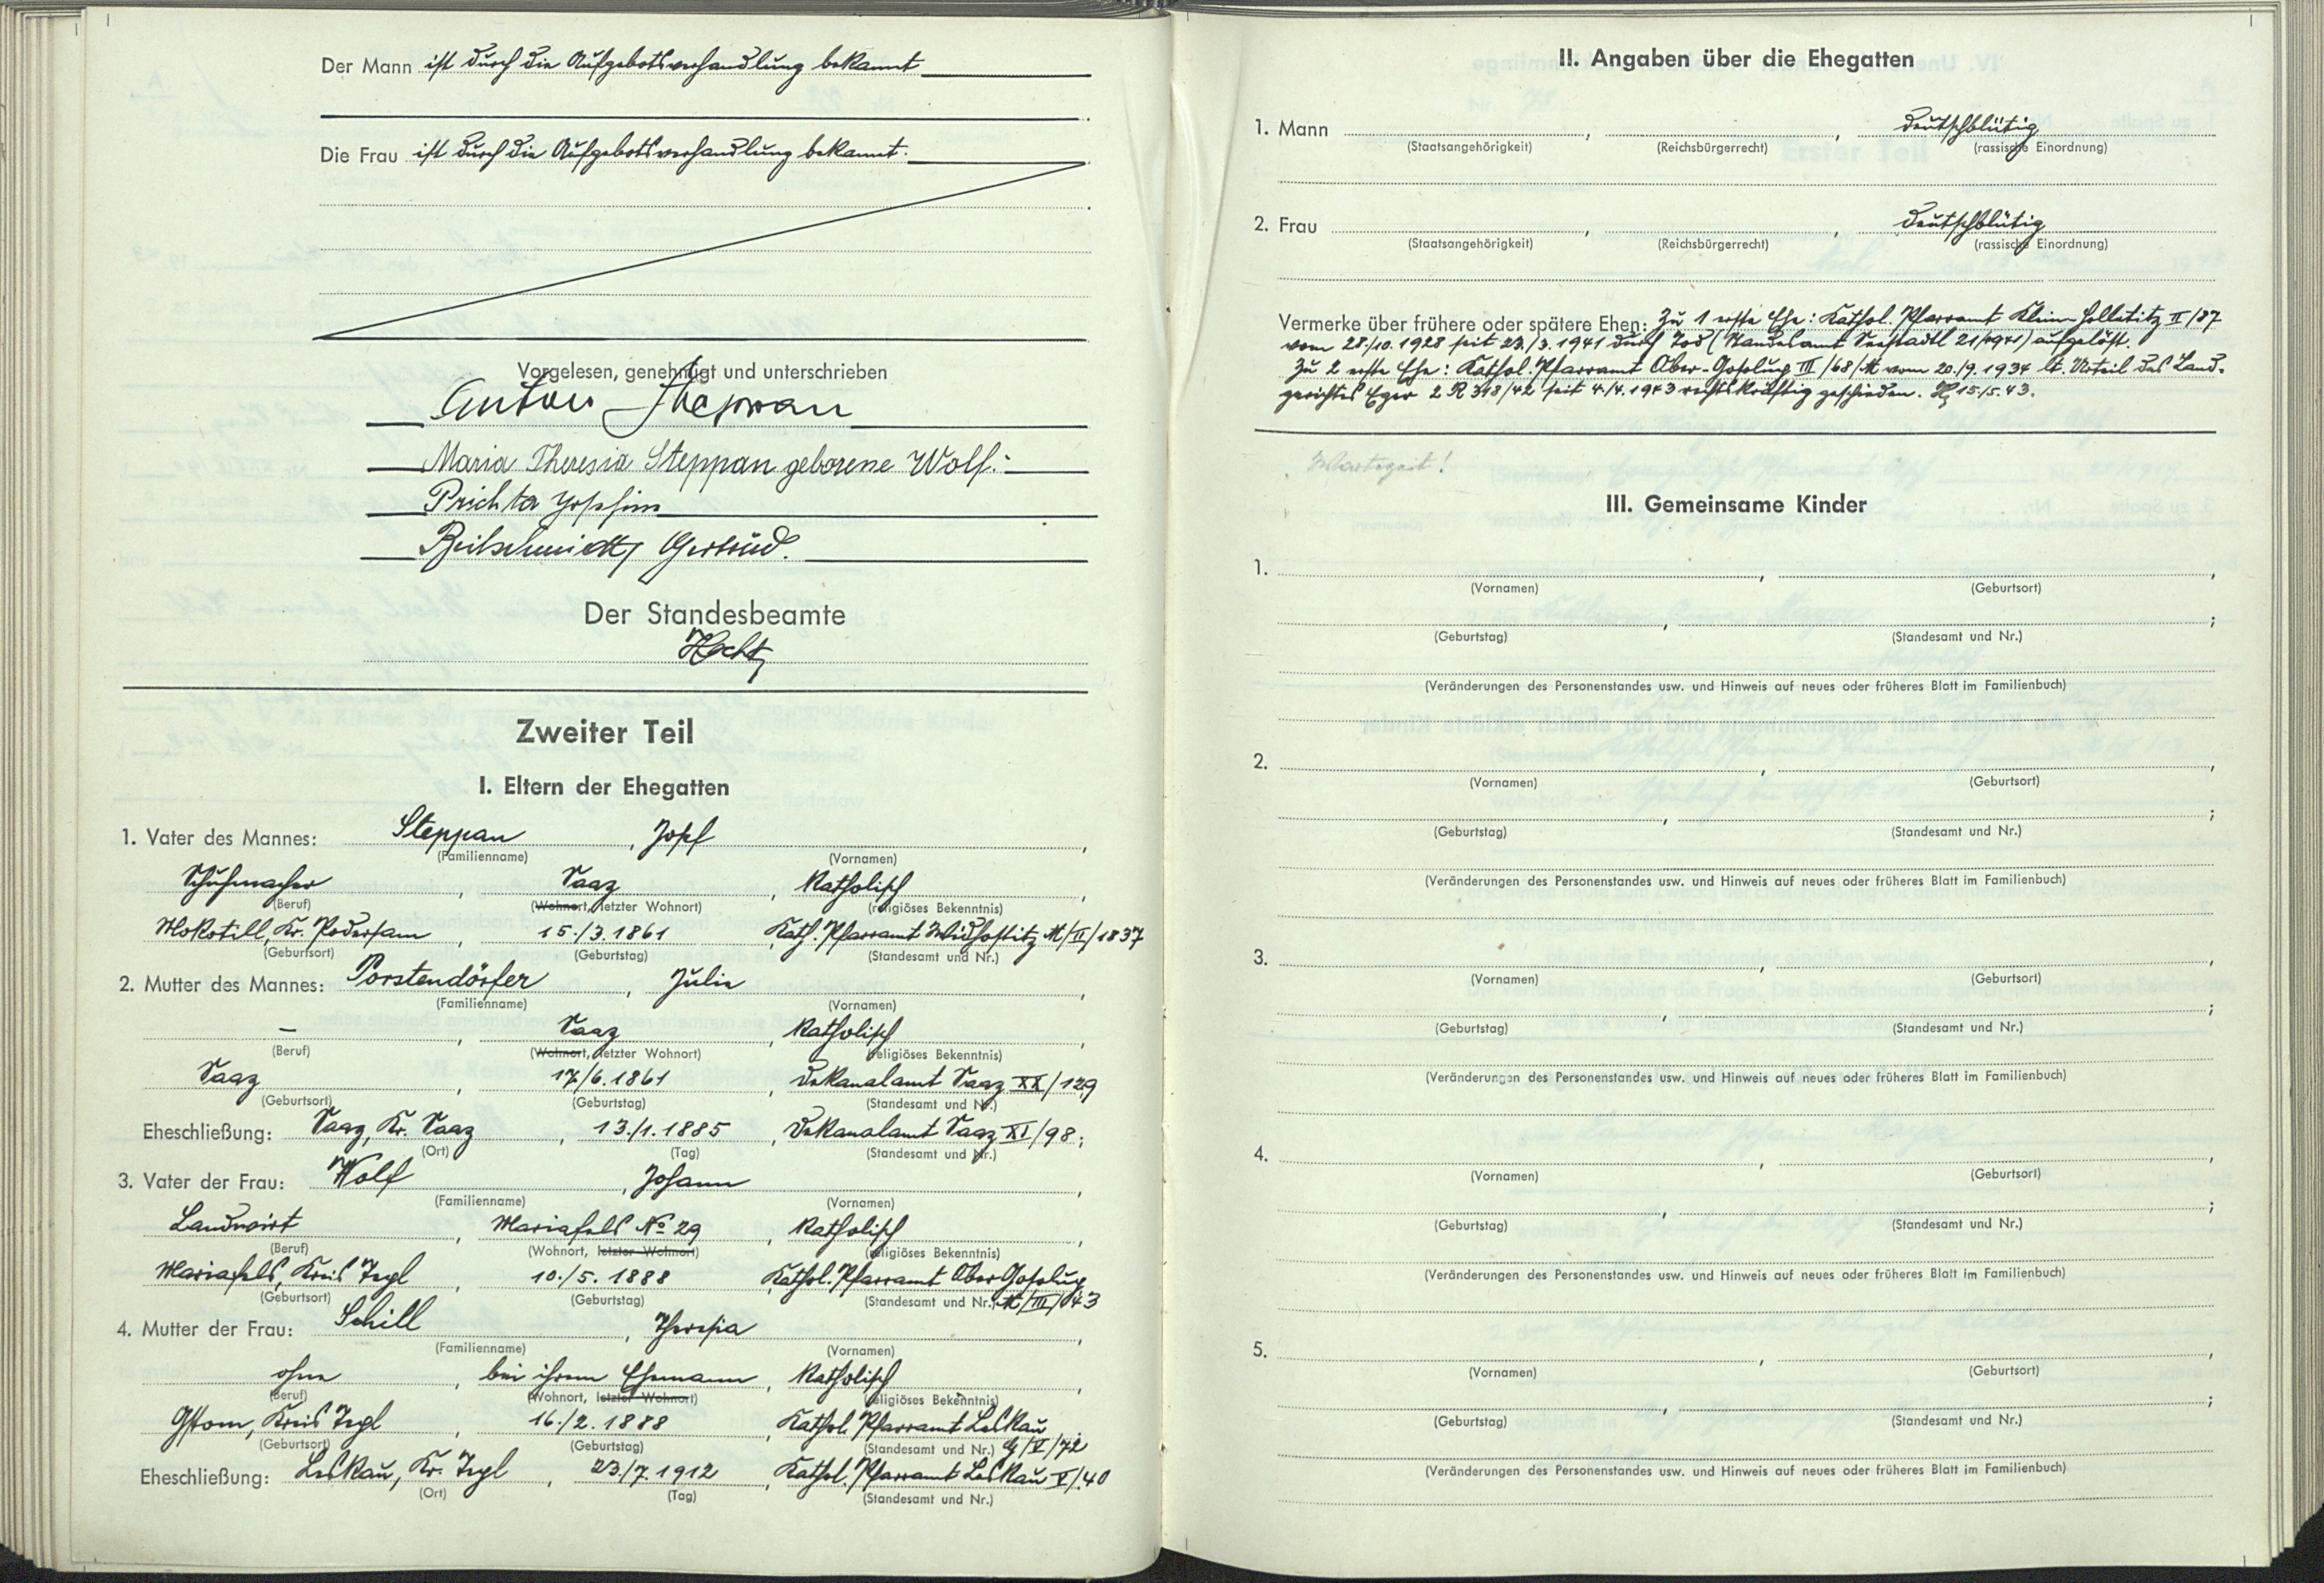 Der Mann ist durch die Aufgebotsverhandlung bekannt
Die Frau ist durch die Aufgebotsverhandlung bekannt.
Vorgelesen, genehmigt und unterschrieben
Anton Steppan
Maria Theresia Steppan geborene Wolf.
Prichta Josefine
Gertrud.
Der Standesbeamte
Hecht
Zweiter Teil
I. Eltern der Ehegatten
1. Vater des Mannes: Steppan, Josef,
(Familienname) (Vornamen)
Schuhmacher, Saaz, katholisch,
(Beruf) (Wohnort, letzter Wohnort) (religiöses Bekenntnis)
Mokotill, Kr. Podersam, 15./3.1861, Kath. Pfarramt Widhostitz M/II/1837
(Geburtsort) (Geburtstag) (Standesamt und Nr.)
2. Mutter des Mannes: Porstendörfer, Julie,
(Familienname) (Vornamen)
–, Saaz, katholisch,
(Beruf) (Wohnort, letzter Wohnort) (religiöses Bekenntnis)
Saaz, 17/6.1861, Dekanalamt Saaz XX/129
(Geburtsort) (Geburtstag) (Standesamt und Nr.)
Eheschließung: Saaz, Kr. Saaz, 13./1.1885, Dekanalamt Saaz XI/98;
(Ort) (Tag) (Standesamt und Nr.)
3. Vater der Frau: Wolf, Johann,
(Familienname) (Vornamen)
Landwirt, Mariafels No 29, katholisch,
(Beruf) (Wohnort, letzter Wohnort) (religiöses Bekenntnis)
Mariafels, Kreis Tepl, 10./5.1888, Kathol. Pfarramt Ober Gosolup
(Geburtsort) (Geburtstag) (Standesamt und Nr.) M/III/43
4. Mutter der Frau: Schill, Theresia,
(Familienname) (Vornamen)
ohne, bei ihrem Ehemann, katholisch,
(Beruf) (Wohnort, letzter Wohnort) (religiöses Bekenntnis)
Gstom, Kreis Tepl, 16./2.1888, Kathol. Pfarramt Leskau
(Geburtsort) (Geburtstag) (Standesamt und Nr.) G/V/72
Eheschließung: Leskau, Kr. Tepl, 23./7.1912, Kathol. Pfarramt Leskau V/40
(Ort) (Tag) (Standesamt und Nr.)
II. Angaben über die Ehegatten
1. Mann , , deutschblütig
(Staatsangehörigkeit) (Reichsbürgerrecht) (rassische Einordnung)
2. Frau , , deutschblütig
(Staatsangehörigkeit) (Reichsbürgerrecht) (rassische Einordnung)
Vermerke über frühere oder spätere Ehen: Zu 1 erste Ehe: Kathol. Pfarramt Klein Holletitz II/87
vom 28./10.1928 seit 23./3.1941 durch Tod (Standesamt Seestadtl 21/1941) aufgelöst.
Zu 2 erste Ehe: Kathol. Pfarramt Ober-Gosolup III/68/M vom 20./9.1934 lt. Urteil des Land-
gerichtes Eger 2 R 348/42 seit 4./4.1943 rechtskräftig geschieden. 15./5.43.
Wartezeit!
III. Gemeinsame Kinder
1. , ,
(Vornamen) (Geburtsort)
, ;
(Geburtstag) (Standesamt und Nr.)
(Veränderungen des Personenstandes usw. und Hinweis auf neues oder früheres Blatt im Familienbuch)
2. , ,
(Vornamen) (Geburtsort)
, ;
(Geburtstag) (Standesamt und Nr.)
(Veränderungen des Personenstandes usw. und Hinweis auf neues oder früheres Blatt im Familienbuch)
3. , ,
(Vornamen) (Geburtsort)
, ;
(Geburtstag) (Standesamt und Nr.)
(Veränderungen des Personenstandes usw. und Hinweis auf neues oder früheres Blatt im Familienbuch)
4. , ,
(Vornamen) (Geburtsort)
, ;
(Geburtstag) (Standesamt und Nr.)
(Veränderungen des Personenstandes usw. und Hinweis auf neues oder früheres Blatt im Familienbuch)
5. , ,
(Vornamen) (Geburtsort)
, ;
(Geburtstag) (Standesamt und Nr.)
(Veränderungen des Personenstandes usw. und Hinweis auf neues oder früheres Blatt im Familienbuch)